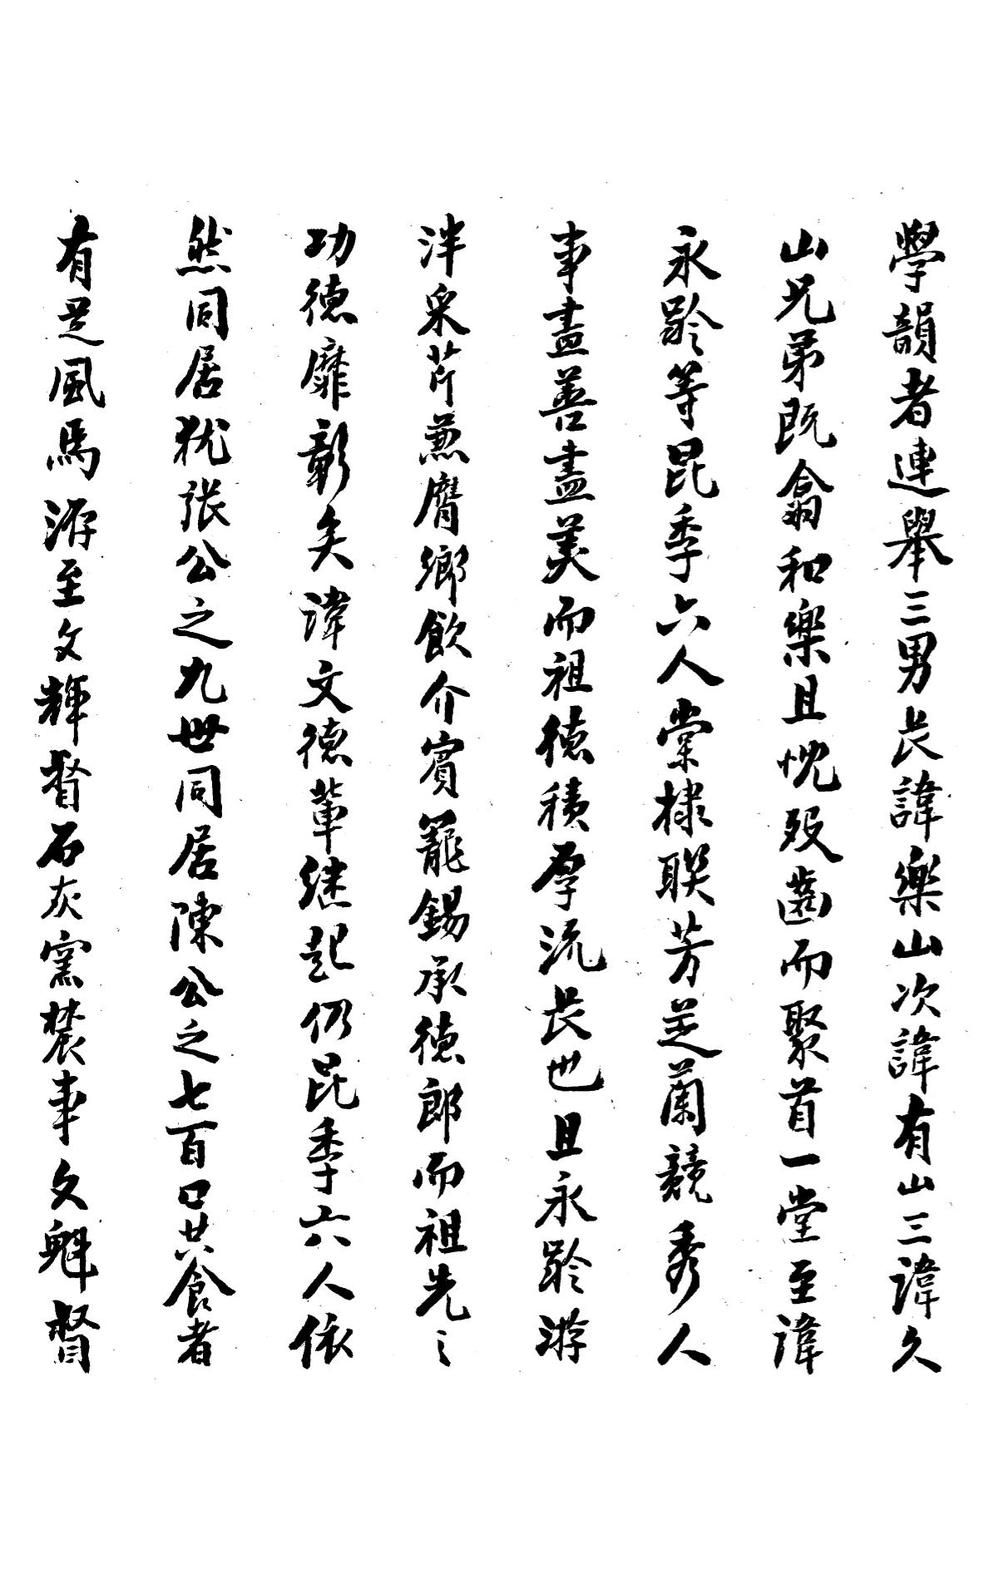 學韻者連舉三男長諱樂山次諱有山三諱久
山兄弟既翕和樂且忱歿齒而聚首一堂至諱
永齡等昆季六人棠棣聯芳芝蘭競秀人人
事盡善盡美而祖德積厚流長也且永齡游
泮采芹薦膺鄉飲介賓寵錫承德郎而祖先之
功德靡彰矣諱文德輩继起仍昆季六人依
然同居犹張公之九世同居陳公之七百口共食者
有是風焉游至文輝督石灰窯農事文魁督